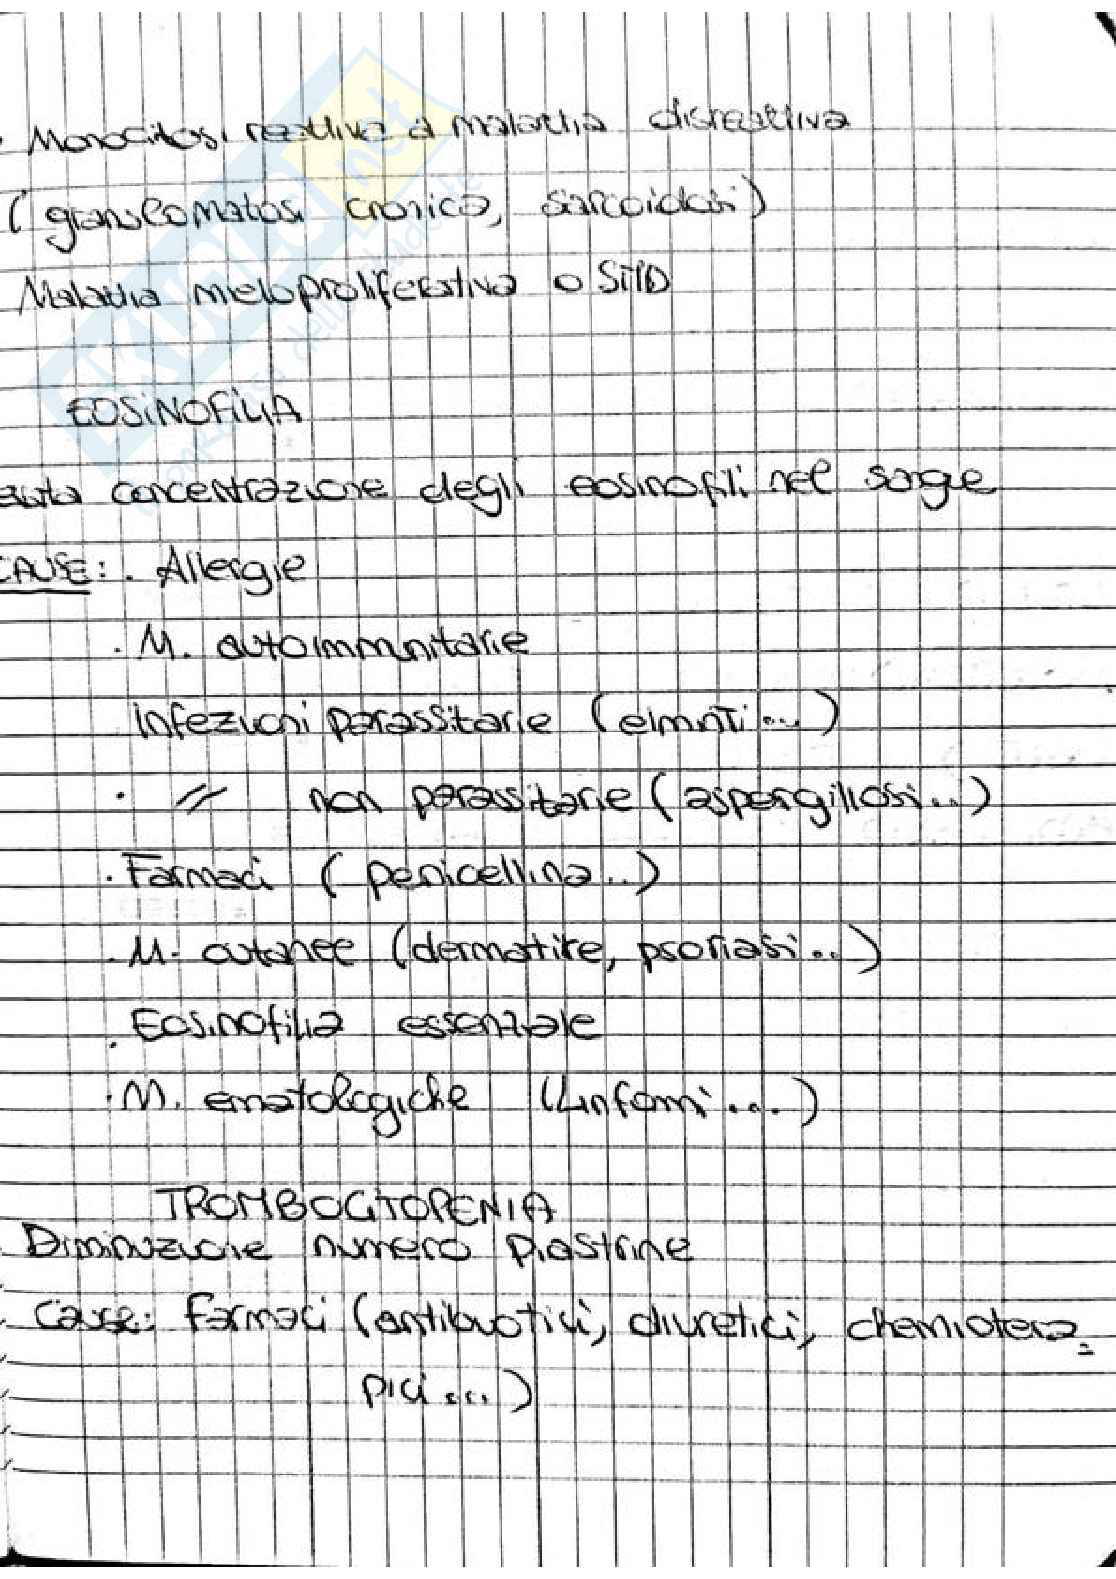 · Monocitosi reattiva a malattia disreattiva
(granulomatosi cronica, sarcoidosi)
Malattia mieloproliferativa o SMD
EOSINOFILIA
concentrazione degli eosinofili nel sangue
CAUSE: · Allergie
· M. autoimmunitarie
infezioni parassitarie (elminti...)
· // non parassitarie (aspergillosi...)
· Farmaci (penicellina..)
· M. cutanee (dermatite, psoriasi...)
· Eosinofilia essenziale
· M. ematologiche (Linfomi...)
TROMBOCITOPENIA
Diminuzione numero piastrine
Cause: farmaci (antibiotici, diuretici, chemiotera=
pici....)